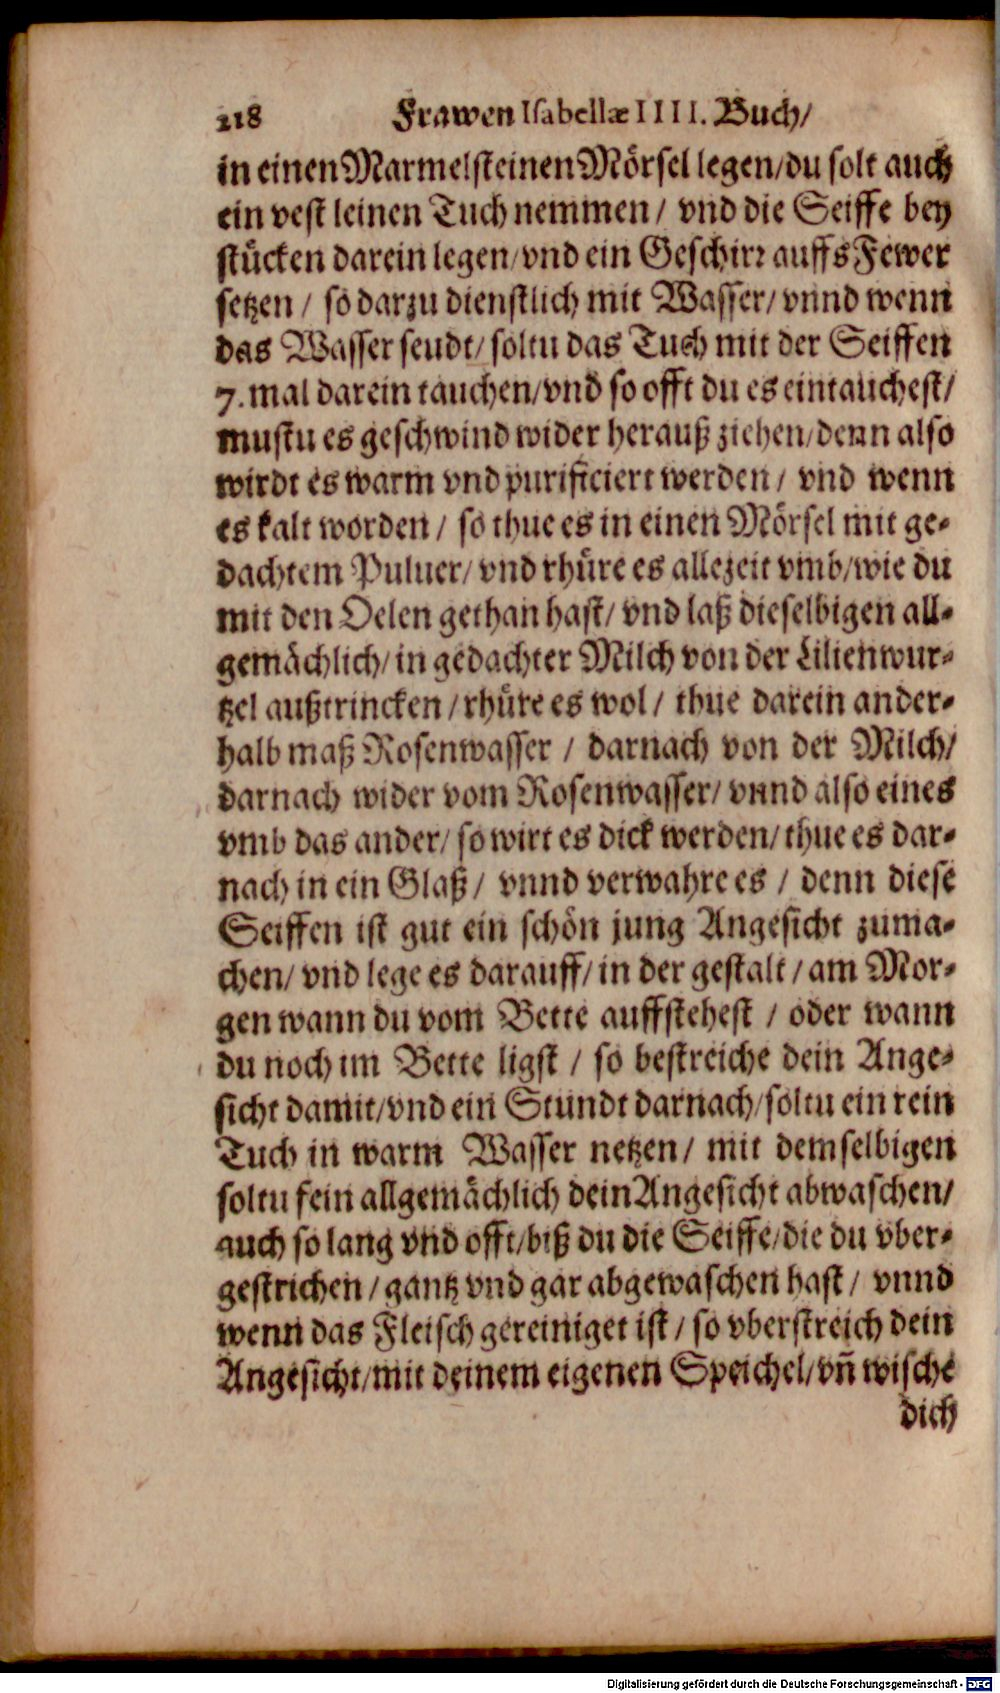 218 Frawen Isabellæ IIII. Buch/
in einen Marmelsteinen Mörsel legen/du solt auch
ein vest leinen Tuch nemmen/ vnd die Seiffe bey
stücken darein legen/vnd ein Geschirr auffs Fewer
setzen / so darzu dienstlich mit Wasser/ vnnd wenn
das Wasser seudt/ soltu das Tuch mit der Seiffen
7. mal darein tauchen/vnd so offt du es eintauchest/
mustu es geschwind wider herauß ziehen/denn also
wirdt es warm vnd purificiert werden / vnd wenn
es kalt worden / so thue es in einen Mörsel mit ge-
dachtem Puluer/ vnd rhüre es allezeit vmb/wie du
mit den Oelen gethan hast/ vnd laß dieselbigen all-
gemächlich/ in gedachter Milch von der Lilienwur-
tzel außtrincken / rhüre es wol / thue darein ander-
halb maß Rosenwasser / darnach von der Milch/
darnach wider vom Rosenwasser/ vnnd also eines
vmb das ander/ so wirt es dick werden/ thue es dar-
nach in ein Glaß/ vnnd verwahre es / denn diese
Seiffen ist gut ein schön jung Angesicht zuma-
chen/ vnd lege es darauff/ in der gestalt / am Mor-
gen wann du vom Bette auffstehest / oder wann
du noch im Bette ligst / so bestreiche dein Ange-
sicht damit/vnd ein Stundt darnach/soltu ein rein
Tuch in warm Wasser netzen/ mit demselbigen
soltu fein allgemächlich dein Angesicht abwaschen/
auch so lang vnd offt/biß du die Seiffe/die du vber-
gestrichen / gantz vnd gar abgewaschen hast/ vnnd
wenn das Fleisch gereiniget ist / so vberstreich dein
Angesicht/mit deinem eigenen Speichel/vñ wische
dich
Digitalisierung gefördert durch die Deutsche Forschungsgemeinschaft - DFG